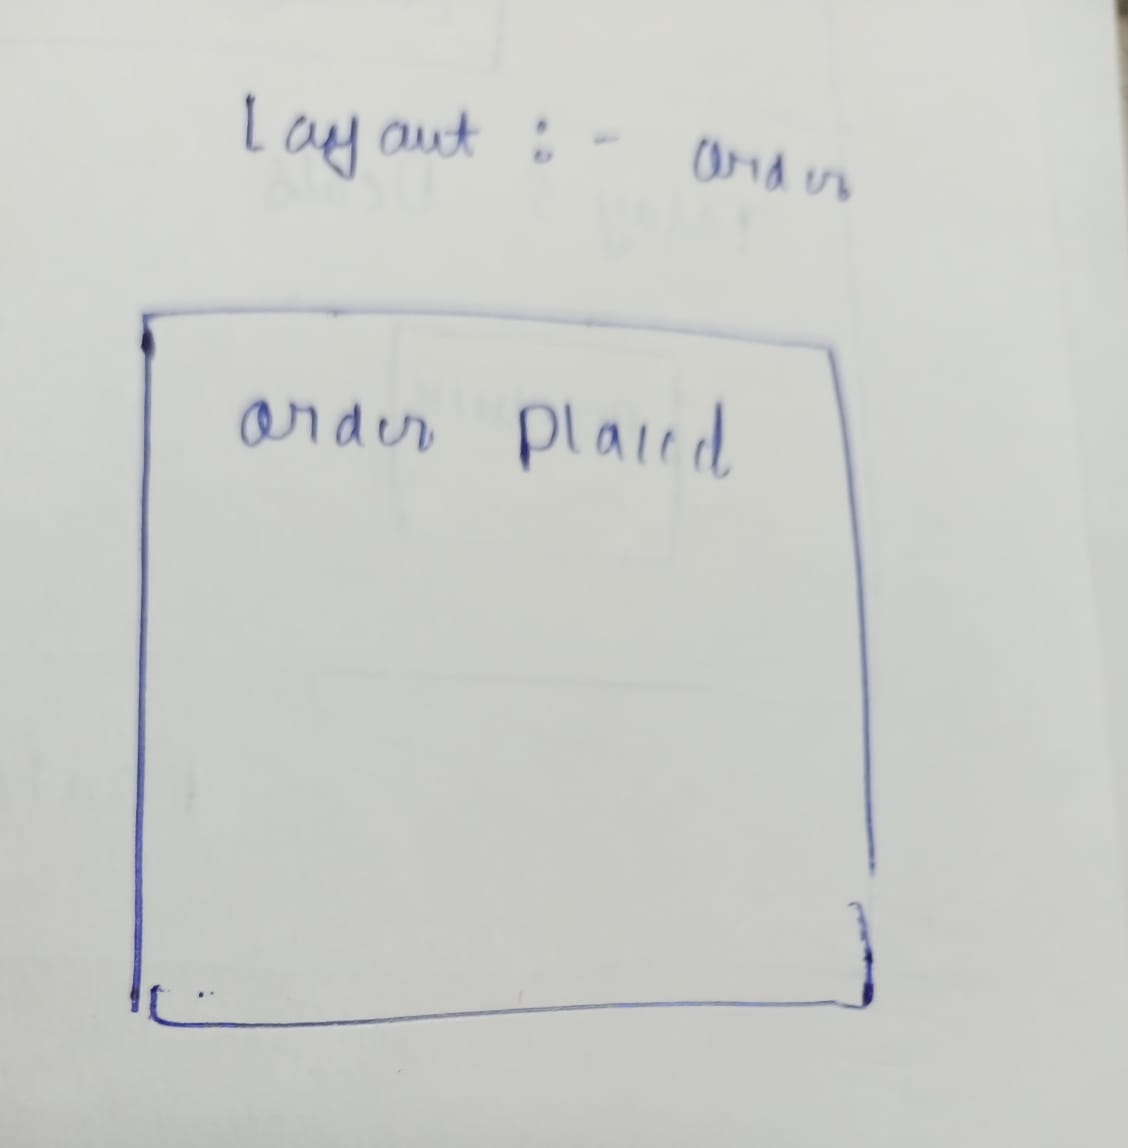 Layout :- order
order Placed